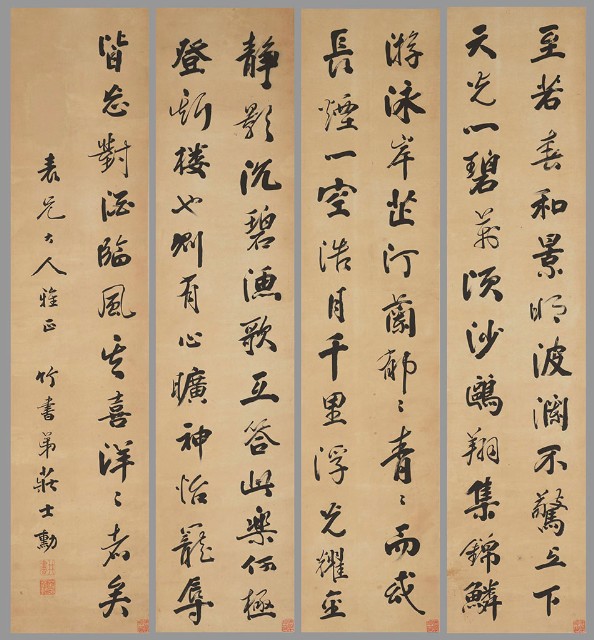 至若春和景明波瀾不驚上下
天光一碧萬頃沙鷗翔集錦鱗
游泳岸芷汀蘭郁々青々而或
長煙一空浩月千里浮光耀金
静影沉碧漁歌互答此樂何極
登斯楼也則有心曠神怡寵辱
皆忘對酒臨風其喜洋々者矣
兄大人雅正 竹書弟莊士勳